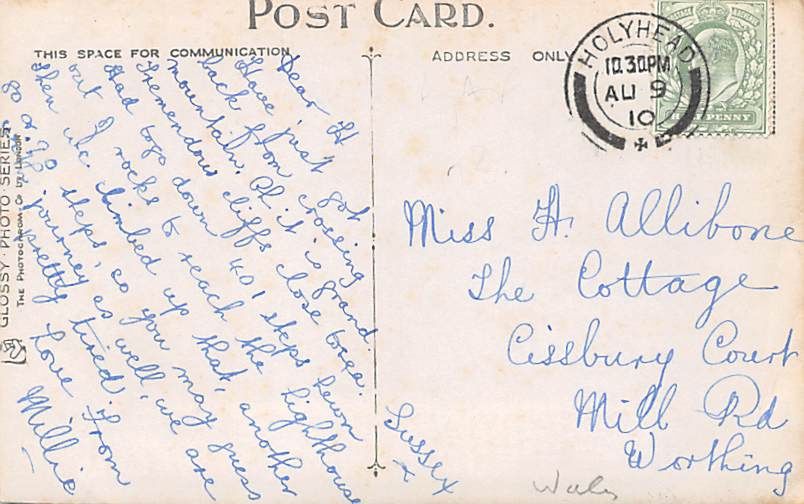 POST CARD.
THIS SPACE FOR COMMUNICATION
ADDRESS ONLY
HOLYHEAD
10.30PM
AU 9
10
PENNY
GLOSSY PHOTO SERIES
THE PHOTOCHROM Co Ltd LONDON
Dear H
Have just got
back from crossing
mountain. Oh it is grand.
Tremendous cliffs close to sea.
Had to go down 401 steps hewn
out of rocks to reach the lighthouse
then we climbed up that, another
80 or 90 steps, so you may guess
journey as well, we are
pretty tired.
Love from
Millie
Miss H. Allibone
The Cottage
Cissbury Court
Mill Rd
Worthing
Sussex
Wales